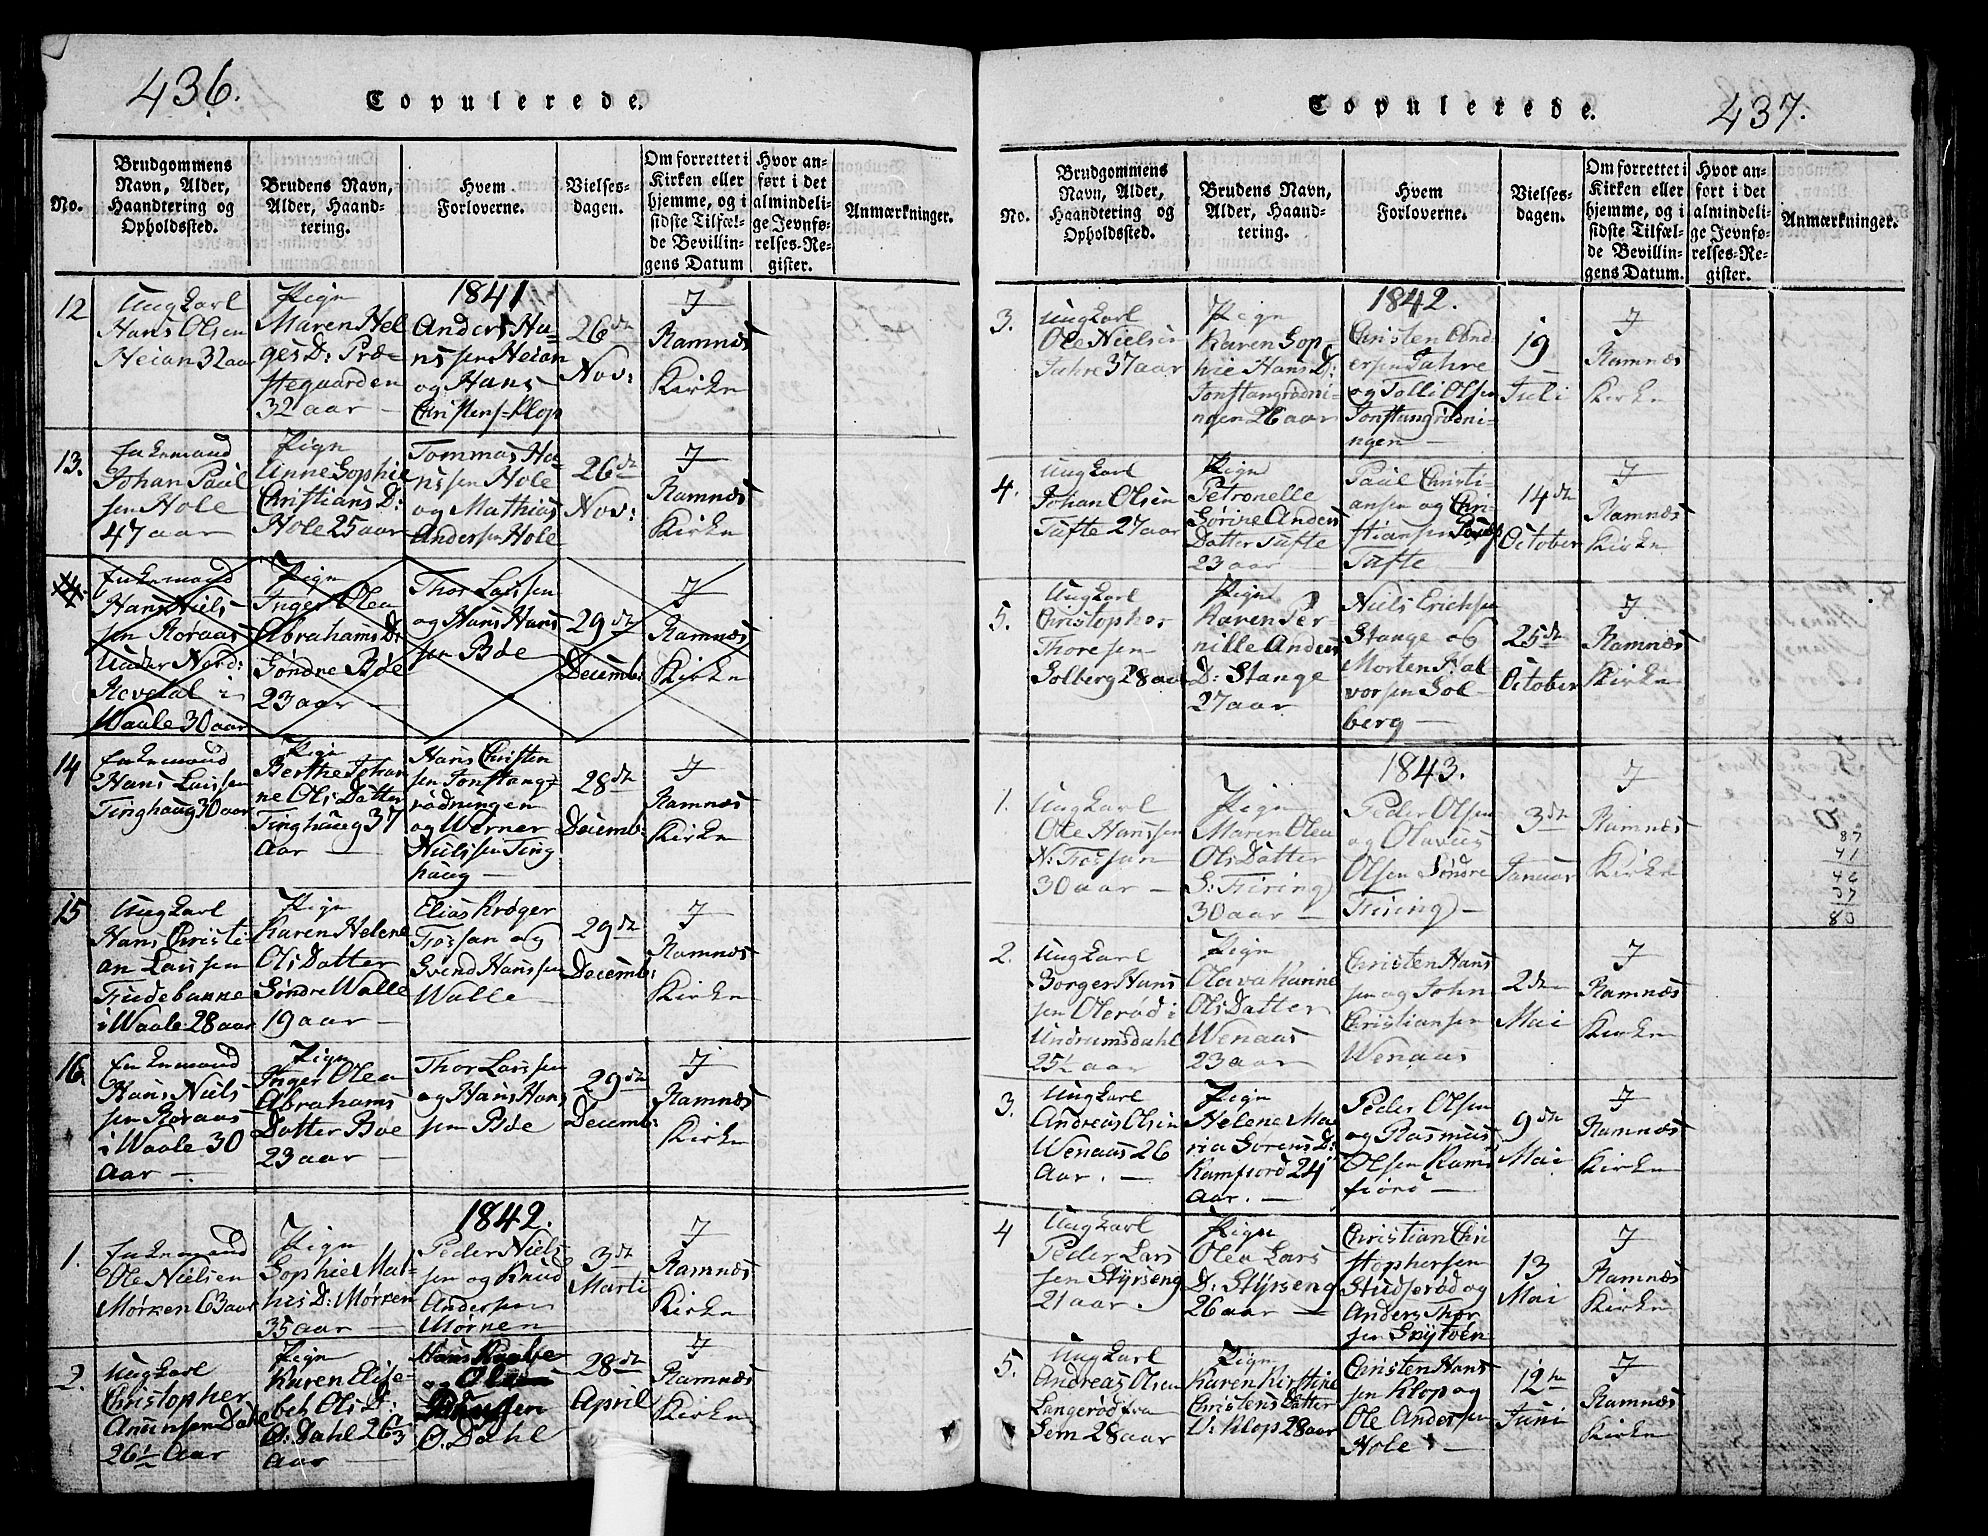 436.
Copulerede.
No.
Brudgommens
Navn, Alder,
Haandtering og
Opholdssted.
Brudens Navn,
Alder, Haand-
tering.
Hvem
Forloverne.
Vielses-
dagen.
Om forrettet i
Kirken eller
hjemme, og i
sidste Tilfæl-
de Bevillin-
gens Datum
Hvor an-
ført i det
almindeli-
ge Jevnfø-
relses-Re-
gister.
Anmærkninger.
1841
12
Ungkarl
Hans Olsen
Heian 32 aar
Pige
Maren Hel
ges D: Præ-
stegaarden
32 aar —
Anders Ha-
nssen Heian
og Hans
Christens: Klop
26de
Nov:
J
Ramnæs
Kirke
13.
Enkemand
Johan Paul
sen Hole
47 aar
Pige
Anne Sophie
Christians D:
Hole 25 aar
Tommas Ha-
nssen Hole
og Mathias
Andersen Hole
26de
Nov:
J
Ramnæs
Kirke
14.
Enkemand
Hans Niels-
sen Roraas
under Nord:
Revetal i
Waale 30 aar
Pige
Inger Olea
Abrahams D:
Søndre Bøe
23 aar —
Thor Larssen
og Hans Hans
sen Bøe
29de
Decemb:
J
Ramnæs
Kirke
14
Enkemand
Hans Larssen
Tinghaug 30 aar
Pige
Berthe Johan
ne Ols Datter
Tinghaug 37
Aar —
Hans Christen
sen Jonstang-
rødningen
og Werner
Nielssen Ting
haug —
28de
Decemb:
J
Ramnæs
Kirke
15
Ungkarl
Hans Christi-
an Larssen
Trudebakke
i Waale 28 aar
Pige
Karen Helene
Ols Datter
Søndre Walle
19 aar —
Elias Krøger
Fossan og
Svend Hanssen
Walle —
29de
Decemb:
J
Ramnæs
Kirke
16
Enkemand
Hans Niels
sen Roraas
i Waale 30
Aar —
Pige
Inger Olea
Abrahams
Datter Bøe
23 aar —
Thor Larssen
og Hans Hans
sen Bøe
29de
Decemb:
J
Ramnæs
Kirke
1842.
1.
Enkemand
Ole Nielsen
Mørken 63 aar
Pige
Sophie Mat-
his D: Mørken
35 aar —
Peder Niels
sen og Knud
Andersen
Mørken
3de
Marti
J
Ramnæs
Kirke
2.
Ungkarl
Christopher
Amunsen Dahl
26½ Aar
Pige
Karen Elise-
beh Ols D:
Ø: Dahl 26¾
Aar —
Hans
og
Ø. Dahl
28de
April
J
Ramnæs
Kirke
437.
Copulerede.
No.
Brudgommens
Navn, Alder,
Haandtering og
Opholdssted.
Brudens Navn,
Alder, Haand-
tering.
Hvem
Forloverne.
Vielses-
dagen.
Om forrettet i
Kirken eller
hjemme, og i
sidste Tilfæl-
de Bevillin-
gens Datum.
Hvor an-
ført i det
almindeli-
ge Jevnfø-
relses-Re-
gister.
Anmærkninger.
1842.
3.
Ungkarl
Ole Nielsen
Jahre 37 aar
Pige
Karen Sop-
hie Hans D:
Jonstangrødni-
ngen 26 aar
Christen And
ersen Jahre
og Tolle Olsen
Jonstangrødni-
ngen —
19
Juli
J
Ramnæs
Kirke
4.
Ungkarl
Johan Olsen
Tufte 27 aar
Pige
Petronelle
Sørine Anders
Datter Tufte
23 aar —
Paul Christi-
ansen og Chri-
stian
Tufte —
14de
October
J
Ramnæs
Kirke
5.
Ungkarl
Christopher
Thoresen
Solberg 28 aar
Pige
Karen Per-
nille Anders
D: Stange
27 aar
Niels Erichsen
Stange og
Morten Hal
vorsen Sol-
berg —
25de
October
J
Ramnæs
Kirke
1843.
1.
Ungkarl
Ole Hanssen
N: Fossan
30 aar —
Pige
Maren Olea
Ols Datter
S: Firing
30 aar —
Peder Olsen
og Olavus
Olsen Søndre
Firing —
3de
Januar
J
Ramnæs
Kirke
87
41
46
37
80
2.
Ungkarl
Borger Hans
sen Olerød i
Undrumsdahl
25½ aar
Pige
Olava Karine
Ols Datter
Wenaas
23 aar —
Christen Hans
sen og John
Christiansen
Wenaas
2den
Mai
J
Ramnæs
Kirke
3.
Ungkarl
Andreas Olsen
Wenaas 26
Aar. —
Pige
Helene Ma-
ria Sørens D:
Kamfiord 24
Aar. —
Peder Olsen
og Rasmus
Olsen Kam
fiord —
9de
Mai
J
Ramnæs
Kirke
4
Ungkarl
Peder Lars
sen Styrseng
21 aar.
Pige
Olea Lars
D: Styrseng
26 aar —
Christian Chri
stophersen
Studserød og
Anders Thor
sen
13
Mai
J
Ramnæs
Kirke
5.
Ungkarl
Andreas Olsen
Langerød fra
Sem 28 aar
Pige
Karen Kirstine
Christens Datter
V: Klop 28 aar
Christen Hans
sen Klop og
Ole Andersen
Hole —
12te
Juni
J
Ramnæs
Kirke